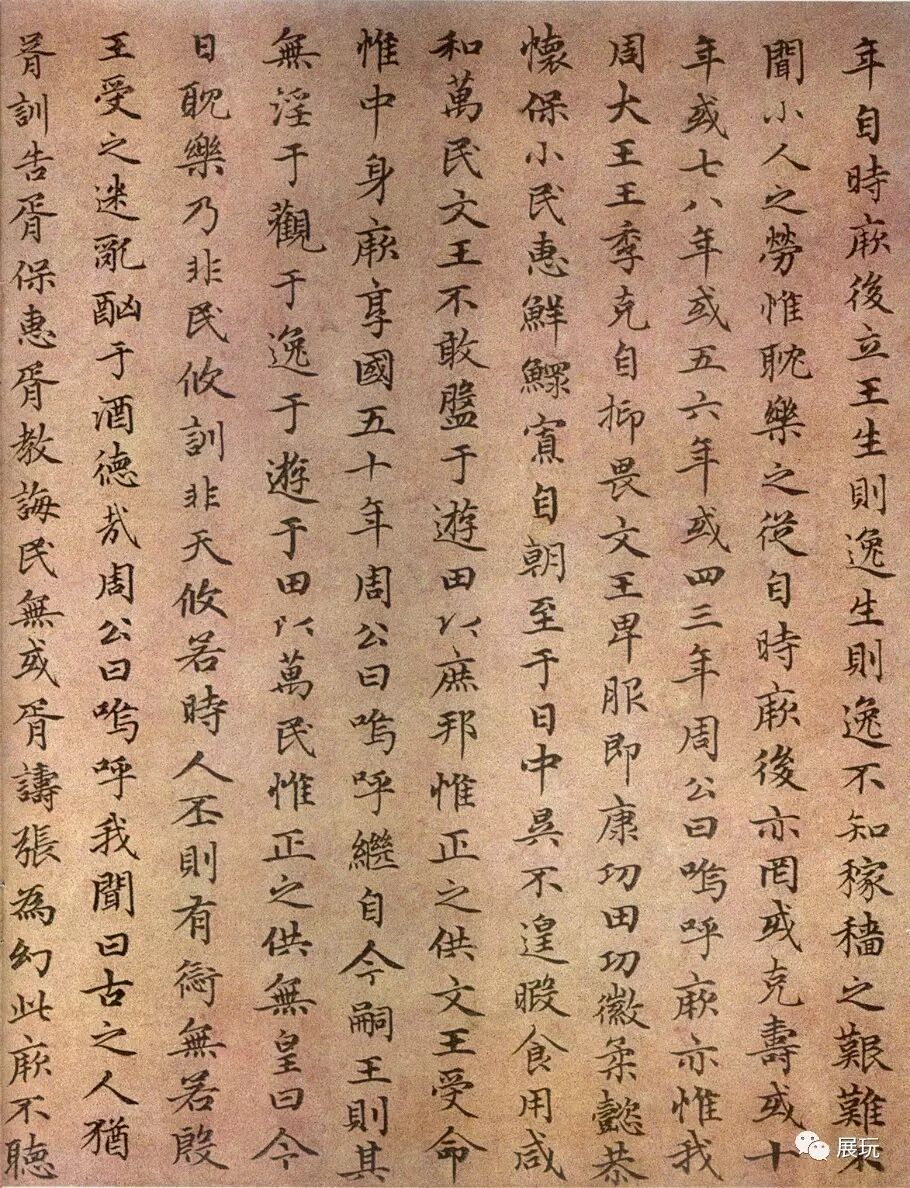 年自時厥後立王生則逸生則逸不知稼穡之艱難不
聞小人之勞惟耽樂之從自時厥後亦罔或克壽或十
年或七八年或五六年或四三年周公曰嗚呼厥亦惟我
周大王王季克自抑畏文王卑服即康功田功徽柔懿恭
懷保小民惠鮮鰥寡自朝至于日中昃不遑暇食用咸
和萬民文王不敢盤于遊田以庶邦惟正之供文王受命
惟中身厥享國五十年周公曰嗚呼繼自今嗣王則其
無淫于觀于逸于遊于田以萬民惟正之供無皇曰今
日耽樂乃非民攸訓非天攸若時人丕則有愆無若殷
王受之迷亂酗于酒德哉周公曰嗚呼我聞曰古之人猶
胥訓告胥保惠胥教誨民無或胥譸張為幻此厥不聽
展玩